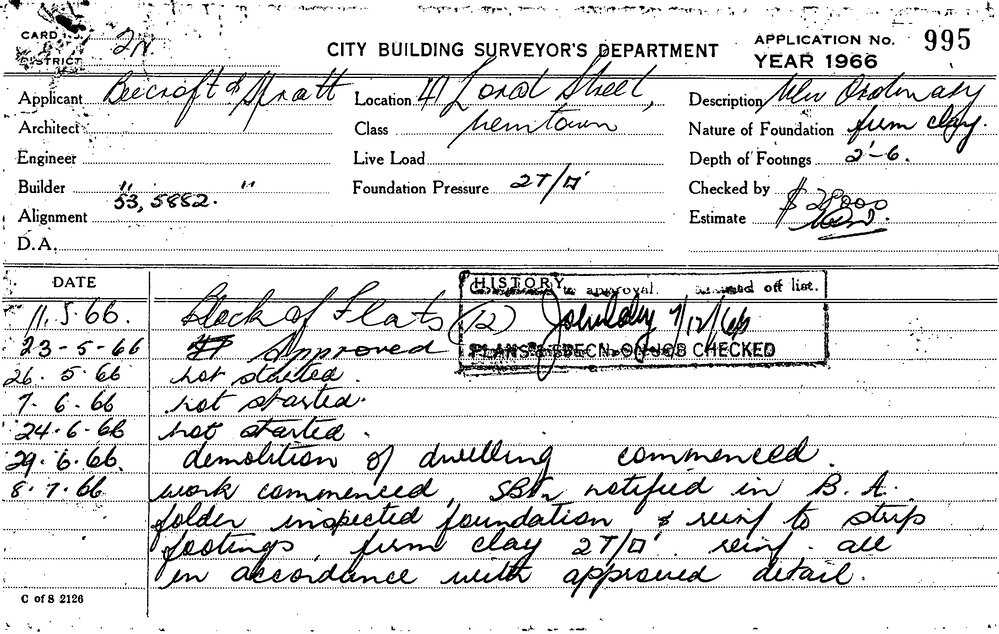 CARD
DISTRICT 2N
CITY BUILDING SURVEYOR'S DEPARTMENT
APPLICATION No. 995
YEAR 1966
Applicant Beecroft & Spratt
Location 41 Lord Street,
Description New Ordinary
Architect
Class Newtown
Nature of Foundation firm clay.
Engineer
Live Load
Depth of Footings 2'-6.
Builder " "
53,5882.
Foundation Pressure 2T/□'
Checked by
Alignment
Estimate $28000
D.A.
DATE
HISTORY
approval. off list.
11.5.66. Block of Flats (12) 7/12/66
23-5-66 Approved PLANS & SPECN. ON JOB CHECKED
26.5.66 not started.
7.6.66 not started.
24.6.66 not started.
29.6.66. demolition of dwelling commenced.
8.7.66 work commenced, notified in B.A.
folder inspected foundation, & reinf to strip
footings, firm clay 2T/□'. reinf. all
in accordance with approved detail.
C of S 2126